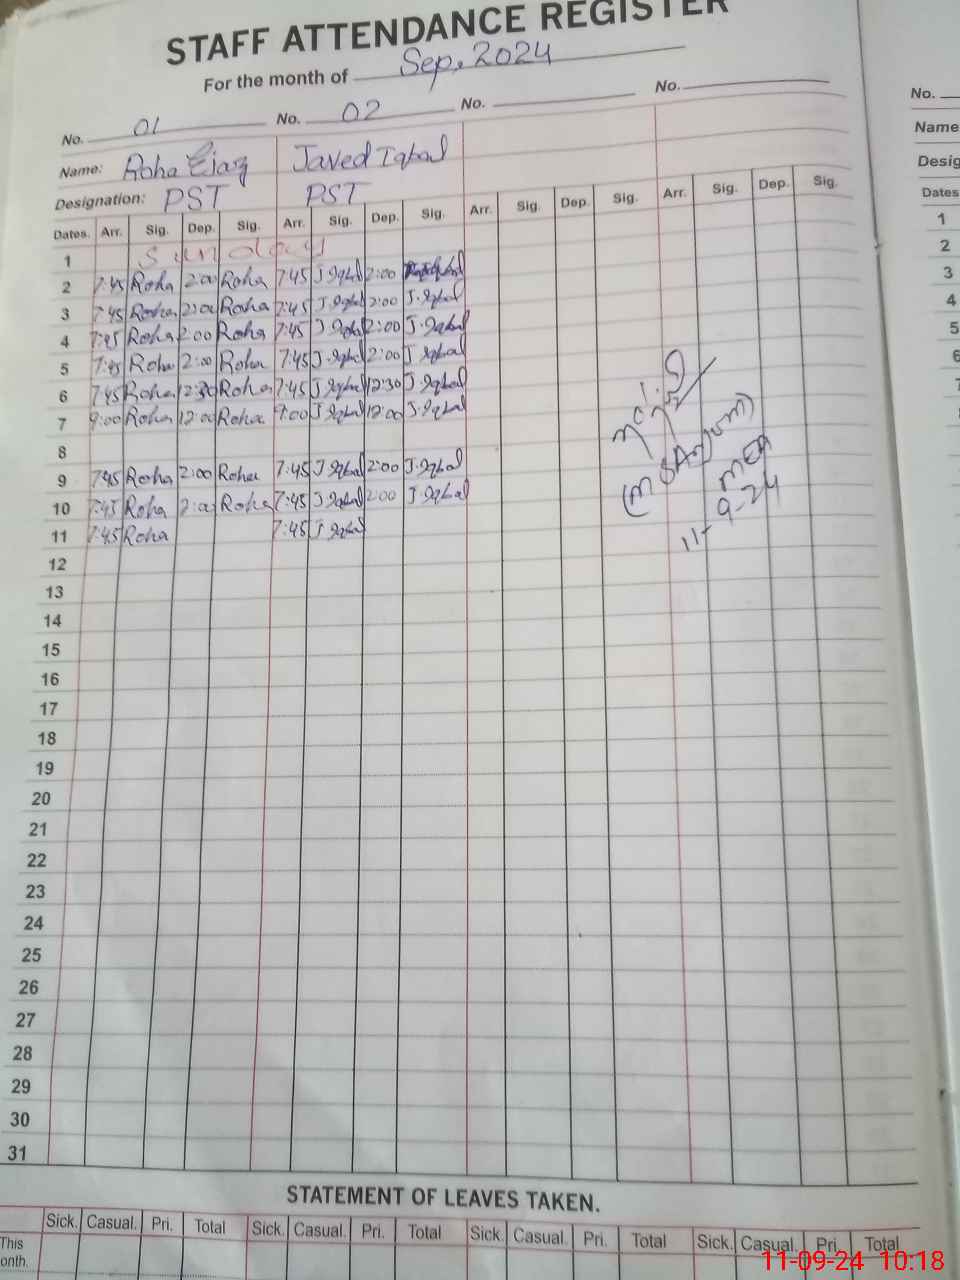 STAFF ATTENDANCE REGISTER
For the month of Sep, 2024
No. 01 No. 02 No. No.
Name: Roha Ejaz Javed Iqbal
Designation: PST PST
Dates. Arr. Sig. Dep. Sig. Arr. Sig. Dep. Sig. Arr. Sig. Dep. Sig. Arr. Sig. Dep. Sig.
1 Sunday
2 7:45 Roha 2:00 Roha 7:45 J.Iqbal 2:00
3 7:45 Roha 2:00 Roha 7:45 J.Iqbal 2:00 J.Iqbal
4 7:45 Roha 2:00 Roha 7:45 J.Iqbal 2:00 J.Iqbal
5 7:45 Roha 2:00 Roha 7:45 J.Iqbal 2:00 J.Iqbal
6 7:45 Roha 12:30 Roha 7:45 J.Iqbal 12:30 J.Iqbal
7 9:00 Roha 12:00 Roha 9:00 J.Iqbal 12:00 J.Iqbal
8
9 7:45 Roha 2:00 Roha 7:45 J.Iqbal 2:00 J.Iqbal
10 7:45 Roha 2:00 Roha 7:45 J.Iqbal 2:00 J.Iqbal
11 7:45 Roha 7:45 J.Iqbal
MEA
11-9-24
12
13
14
15
16
17
18
19
20
21
22
23
24
25
26
27
28
29
30
31
STATEMENT OF LEAVES TAKEN.
Sick. Casual. Pri. Total Sick. Casual. Pri. Total Sick. Casual. Pri. Total Sick. Casual. Pri. Total
This
onth.
No.
Name
Desig
Dates
1
2
3
4
5
6
7
11-09-24 10:18